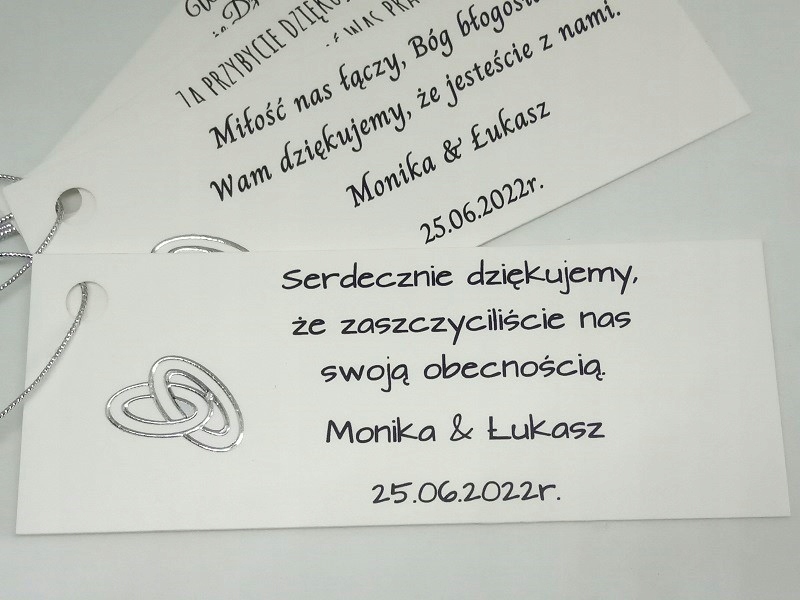 ZA PRZYBYCIE
Miłość nas łączy, Bóg
Wam dziękujemy, że jesteście z nami.
Monika & Łukasz
25.06.2022r.
Serdecznie dziękujemy,
że zaszczyciliście nas
swoją obecnością.
Monika & Łukasz
25.06.2022r.